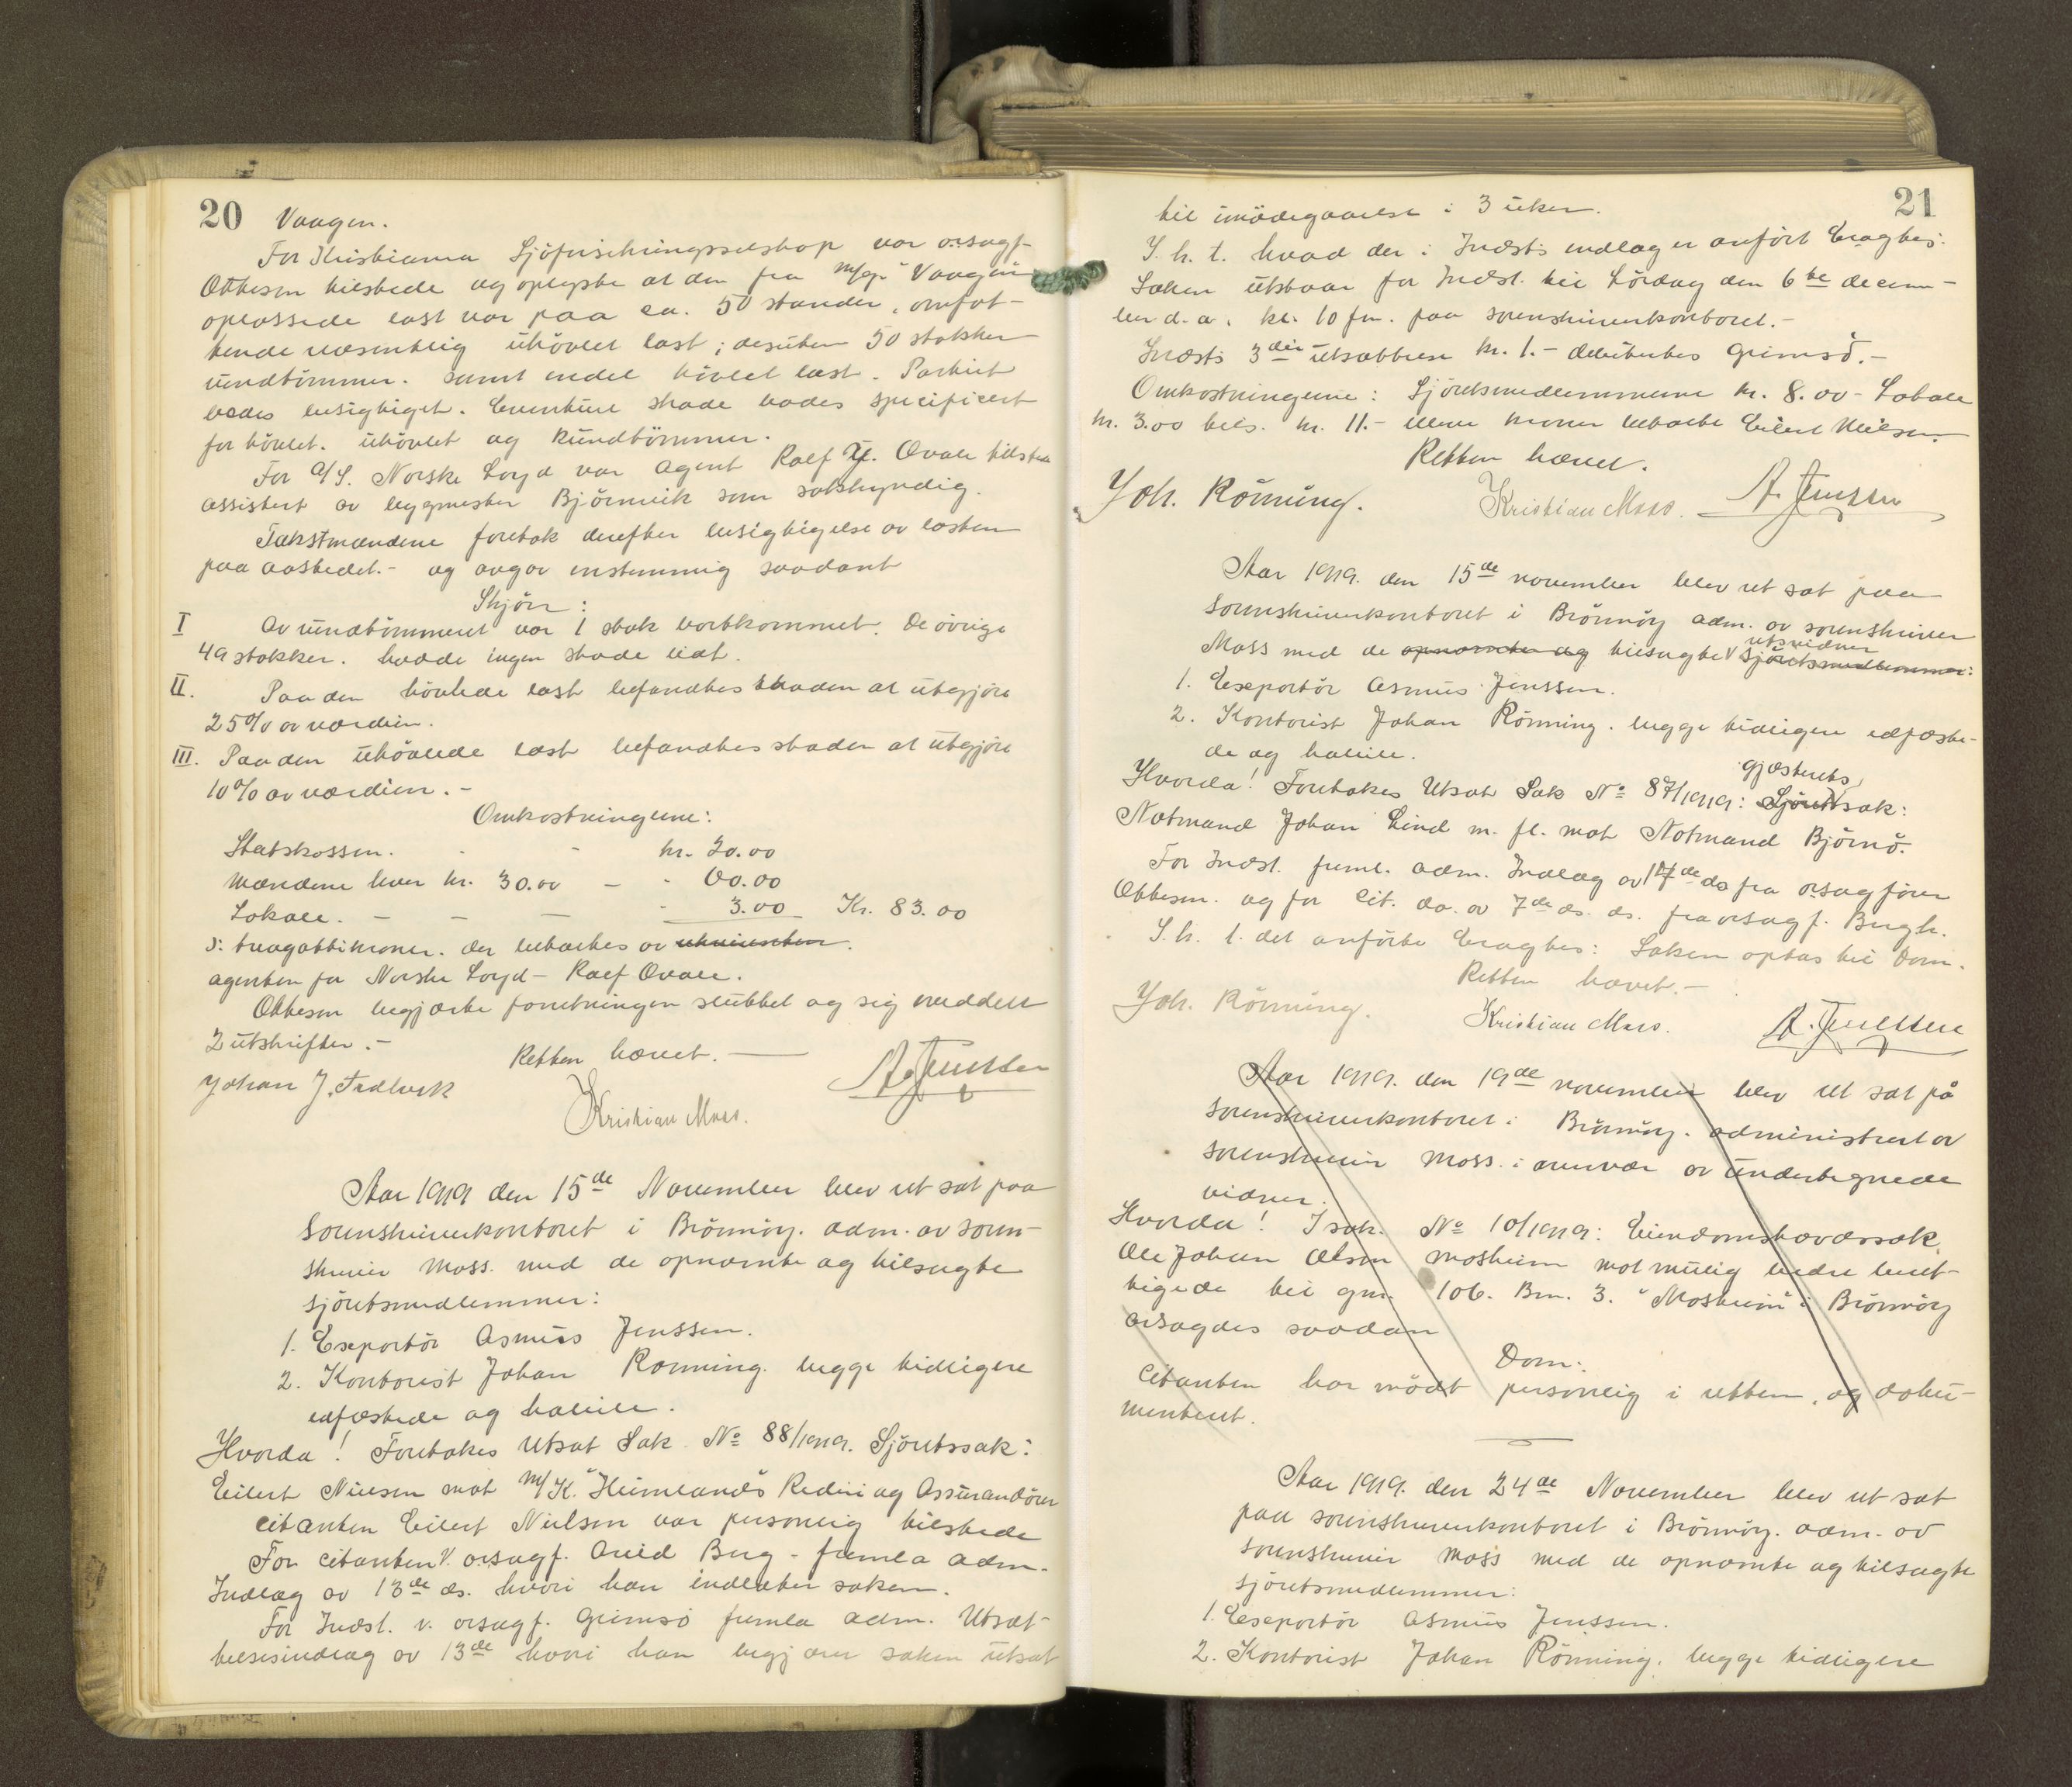 20 Vaagen.
For Kristiania Sjöforsikringsselskap var o.rsagf.
Ottesen tilstede og oplyste at den fra m/gr "Vaagen"
oplossede last var paa ca. 50 stander, omfat-
tende væsentlig uhövlet last; desuten 50 stokker
rundtömmer. samt endel hövlet last. Partiet
bedes besigtiget. Eventuel skade bedes specificert
for hövlet. uhövlet og Rundtömmer.
For A/S. Norske Loyd var agent Ralf Y. Qvale tilstede
assistert av bygmester Björnvik som sakkyndig.
Takstmændene foretok derefter besigtigelse av lasten
paa aastedet.- og avgav enstemmig saadant
Skjön:
I Av rundtömmeret var 1 stok bortkommet. De övrige
49 stokker. hadde ingen skade lidt.
II. Paa den hövlede last befandtes skaden at utgjöre
25% av værdien.
III. Paa den uhövlede last befandtes skaden at utgjöre
10% av værdien.-
Omkostningerne:
Statskassen. - - kr. 20.00
Mændene hver kr. 30.00 - - 60.00
Lokale. - - - - 3.00 Kr. 83.00
o: treogottikroner. der betaltes av rekvirenten.
agenten for Norske Loyd - Ralf Qvale.
Ottesen begjærte forretningen sluttet og sig meddelt
2 utskrifter.-
Retten hævet.
Johan J. Tidlvek Kristian Moss. A. Jenssen
Aar 1919 den 15de November blev ret sat paa
Sorenskriverkontoret i Brönnöy. adm. av soren-
skriver Moss. med de opnævnte og tilsagte
sjöretsmedlemmer:
1. Exportör Asmus Jenssen.
2. Kontorist Johan Rönning. begge tidligere
edfæstede og habile.
Hvorda! Foretokes Utsat Sak No 88/1919. Sjöretssak:
Eilert Nielsen mot M/K. "Heimland"s Rederi og Assurandörer
Citanten Eilert Nielsen var personlig tilstede
For citanten v. o.rsagf. Arild Berg - fremla adm.
Indlæg av 13de ds. hvori han indlater saken.
For Indst. v. o.rsagf. Grimsö fremla adm. Utsæt-
telsesindlæg av 13de hvori han begjærer saken utsat
21
til imödegaaelse i 3 uker.
I. h. t. hvad der i Indst.s indlæg er anfört Eragtes:
Saken utstaar for Indst. til Lördag den 6te decem-
ber d. a. kl. 10 fm. paa sorenskriverkontoret.-
Indst.s 3die utsættelse kr. 1.- debiteres Grimsö.-
Omkostningerne: Sjöretsmedlemmerne kr. 8.00 - Lokale
kr. 3.00 tils. kr. 11.- elleve kroner betalte Eilert Nielsen.
Retten hævet.
Joh. Rönning. Kristian Moss. A. Jenssen
Aar 1919. den 15de november blev ret sat paa
Sorenskriverkontoret i Brönnöy adm. av sorenskriver
Moss med de opnævnte og tilsagte V sjöretsmedlemmer: retsvidner
1. Exportör Asmus Jenssen.
2. Kontorist Johan Rönning. begge tidligere edfæste-
de og habile.
Hvorda! Foretokes Utsat Sak No 87/1919: Sjöretssak: gjæsterets
Notmand Johan Lind m. fl. mot Notmand Björnö.
For Indst. freml. adm. Indlæg av 14de ds fra o.rsagförer
Ottesen. og for Cit. do. av 7de ds. ds. fra o.rsagf. Bergh.
I. h. t. det anförte Eragtes: Saken optas til Dom.
Retten hævet.-
Joh. Rönning. Kristian Moss. A. Jenssen
Aar 1919. den 19de november blev ret sat på
sorenskriverkontoret i Brönnöy. administrert av
sorenskriver Moss. i overvær av undertegnede
vidner.
Hvorda! I sak. No 10/1919: Eiendomshævdssak
Ole Johan Olsen Mosheim mot mulig bedre beret-
tigede til gnr. 106. Bnr. 3. "Mosheim" i Brönnöy
avsagdes saadan
Dom:
Citanten har mödt personlig i retten, og doku-
menteret.
Aar 1919. den 24de November blev ret sat
paa sorenskriverkontoret i Brönnöy. adm. av
sorenskriver Moss med de opnævnte og tilsagte
sjöretsmedlemmer:
1. Exportör Asmus Jenssen.
2. Kontorist Johan Rönning. begge tidligere